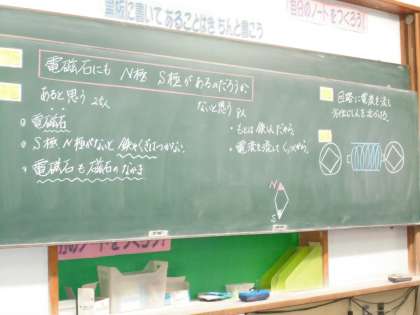 黒板に書いてあることはきちんと書こう
自分のノートをつくろう!
電磁石にも N極 S極があるのだろうか
あると思う
ないと思う
・電磁石
・S極 N極がないと鉄やくぎはつかない
・電磁石も磁石のなかま
・もとは鉄しんだから。
・電流を流して
回路に電流を流し
N
S
自分のノートをつくろう!